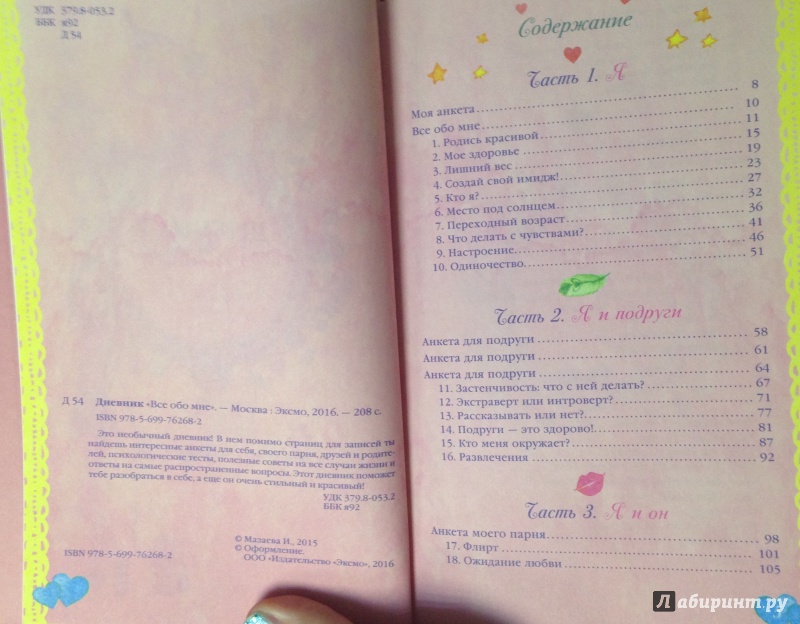 УДК 379.8-053.2
ББК я92
Д 54
Д 54 Дневник «Все обо мне». — Москва : Эксмо, 2016. — 208 с.
ISBN 978-5-699-76268-2
Это необычный дневник! В нем помимо страниц для записей ты
найдешь интересные анкеты для себя, своего парня, друзей и родите-
лей, психологические тесты, полезные советы на все случаи жизни и
ответы на самые распространенные вопросы. Этот дневник поможет
тебе разобраться в себе, а еще он очень стильный и красивый!
УДК 379.8-053.2
ББК я92
© Мазаева И., 2015
© Оформление.
ООО «Издательство «Эксмо», 2016
ISBN 978-5-699-76268-2
Содержание
Часть 1. Я
Моя анкета 8
Все обо мне 10
1. Родись красивой 11
2. Мое здоровье 15
3. Лишний вес 19
4. Создай свой имидж! 23
5. Кто я? 27
6. Место под солнцем 32
7. Переходный возраст 36
8. Что делать с чувствами? 41
9. Настроение 46
10. Одиночество 51
Часть 2. Я и подруги
Анкета для подруги 58
Анкета для подруги 61
Анкета для подруги 64
11. Застенчивость: что с ней делать? 67
12. Экстраверт или интроверт? 71
13. Рассказывать или нет? 77
14. Подруги — это здорово! 81
15. Кто меня окружает? 87
16. Развлечения 92
Часть 3. Я и он
Анкета моего парня 98
17. Флирт 101
18. Ожидание любви 105
Лабиринт.ру